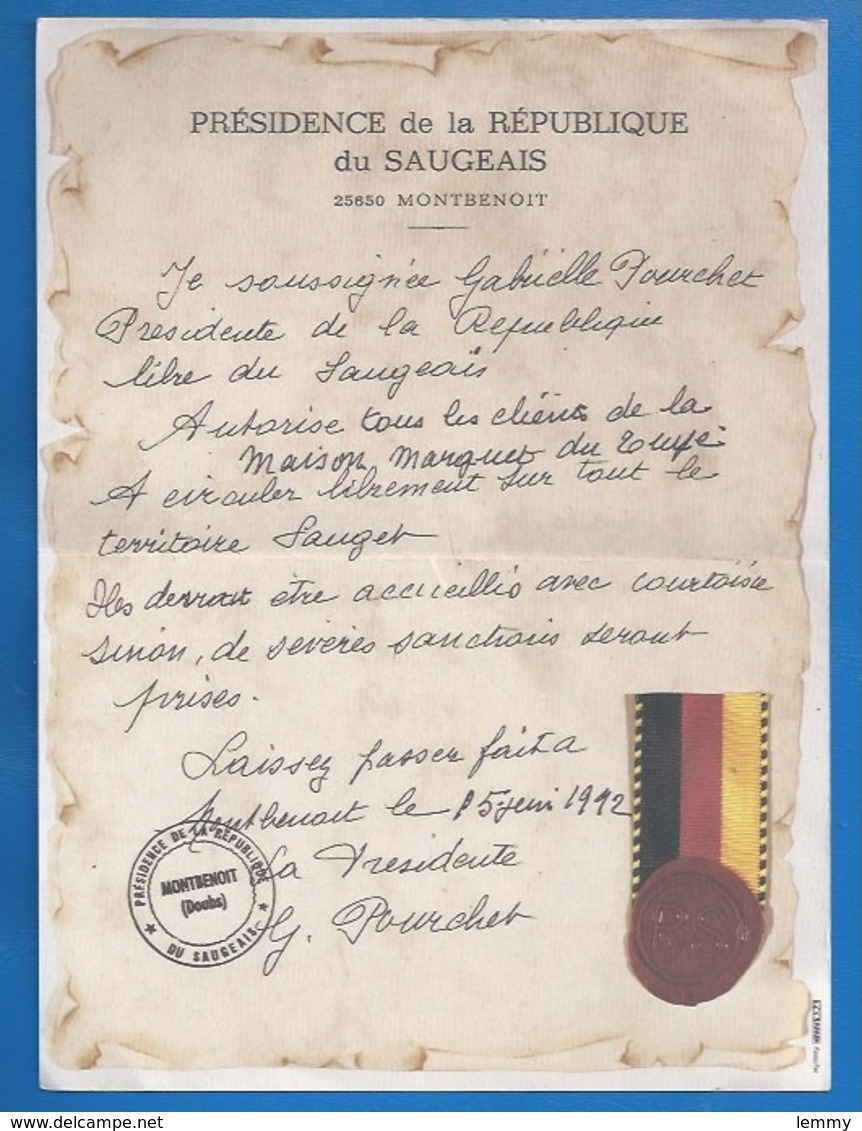 PRÉSIDENCE de la RÉPUBLIQUE
du SAUGEAIS
25650 MONTBENOIT
Je soussignée Gabrielle Pourchet
Presidente de la Republique
libre du Saugeais
Autorise tous les clients de la
Maison Marguet du
A circuler librement sur tout le
territoire Sauget
Ils devront être accueillis avec courtoisie
sinon, de sévères sanctions seront
prises.
Laissez passer fait a
Montbenoit le 15 juin 1992
La Presidente
G. Pourchet
PRÉSIDENCE DE LA RÉPUBLIQUE
MONTBENOIT
(Doubs)
★ DU SAUGEAIS ★
RS
lemmy